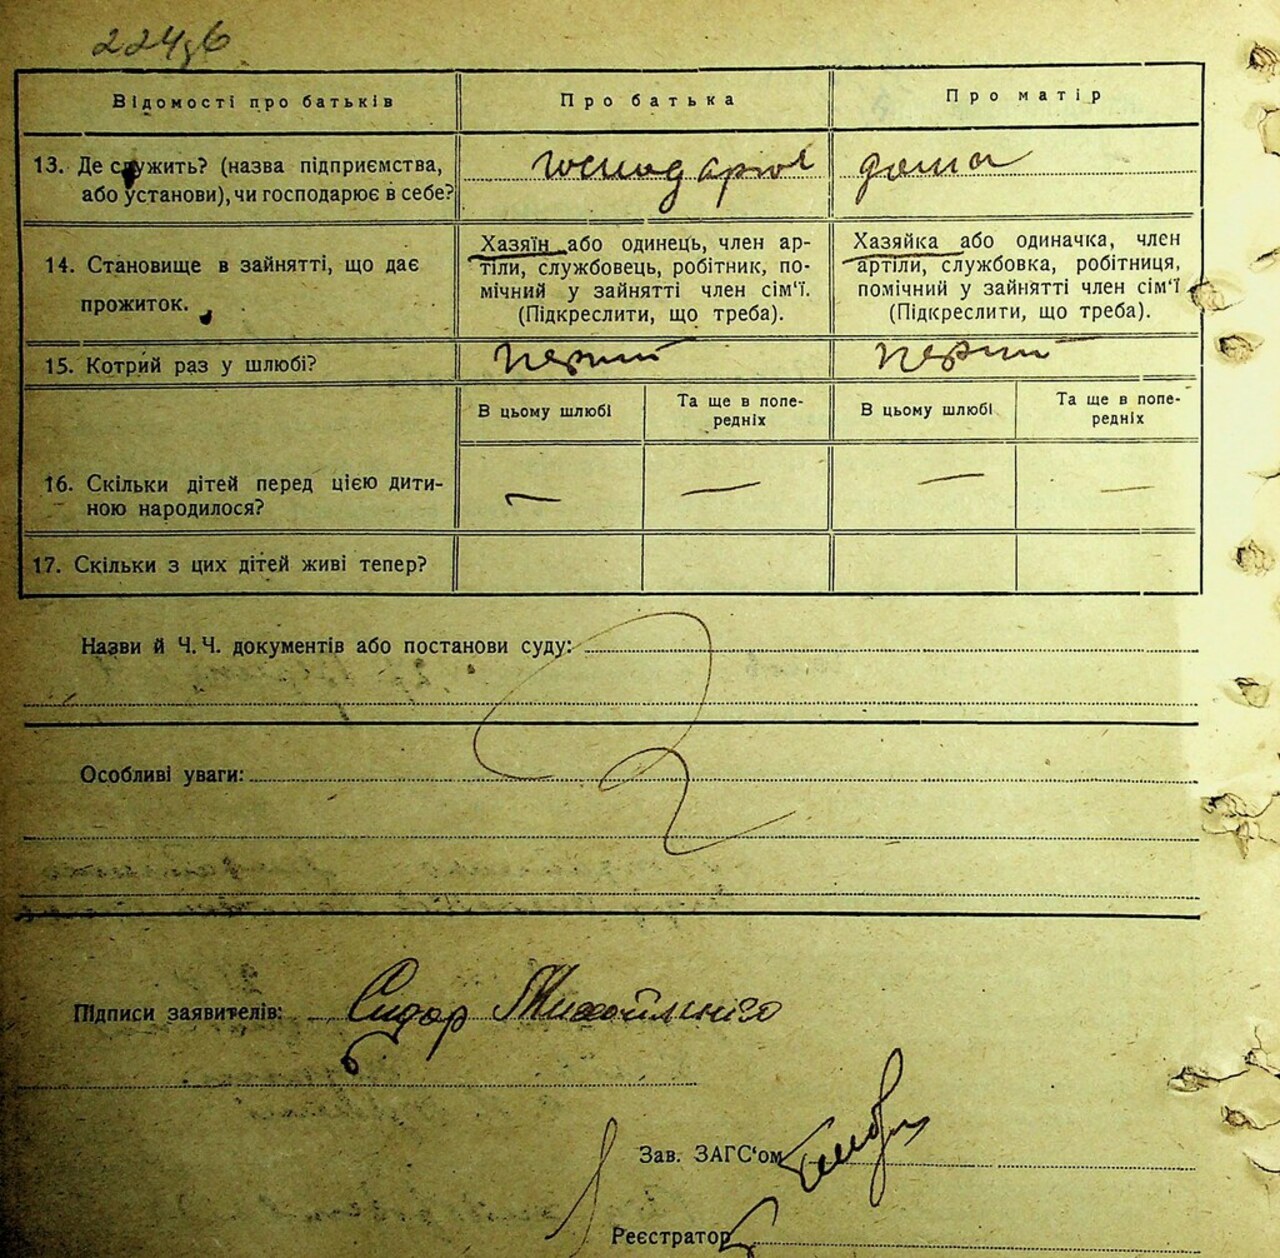 Відомості про батьків
Про батька
Про матір
13. Де служить? (назва підприємства,
або установи), чи господарює в себе?
господарює
дома
14. Становище в зайнятті, що дає
прожиток.
Хазяїн або одинець, член ар-
тіли, службовець, робітник, по-
мічний у зайнятті член сім'ї.
(Підкреслити, що треба).
Хазяйка або одиначка, член
артіли, службовка, робітниця,
помічний у зайнятті член сім'ї
(Підкреслити, що треба).
15. Котрий раз у шлюбі?
перший
перший
В цьому шлюбі
Та ще в попе-
редніх
В цьому шлюбі
Та ще в попе-
редніх
16. Скільки дітей перед цією дити-
ною народилося?
— — — —
17. Скільки з цих дітей живі тепер?
Назви й Ч.Ч. документів або постанови суду:
Особливі уваги:
Підписи заявителів: Сидор
Зав. ЗАГС'ом
Реєстратор